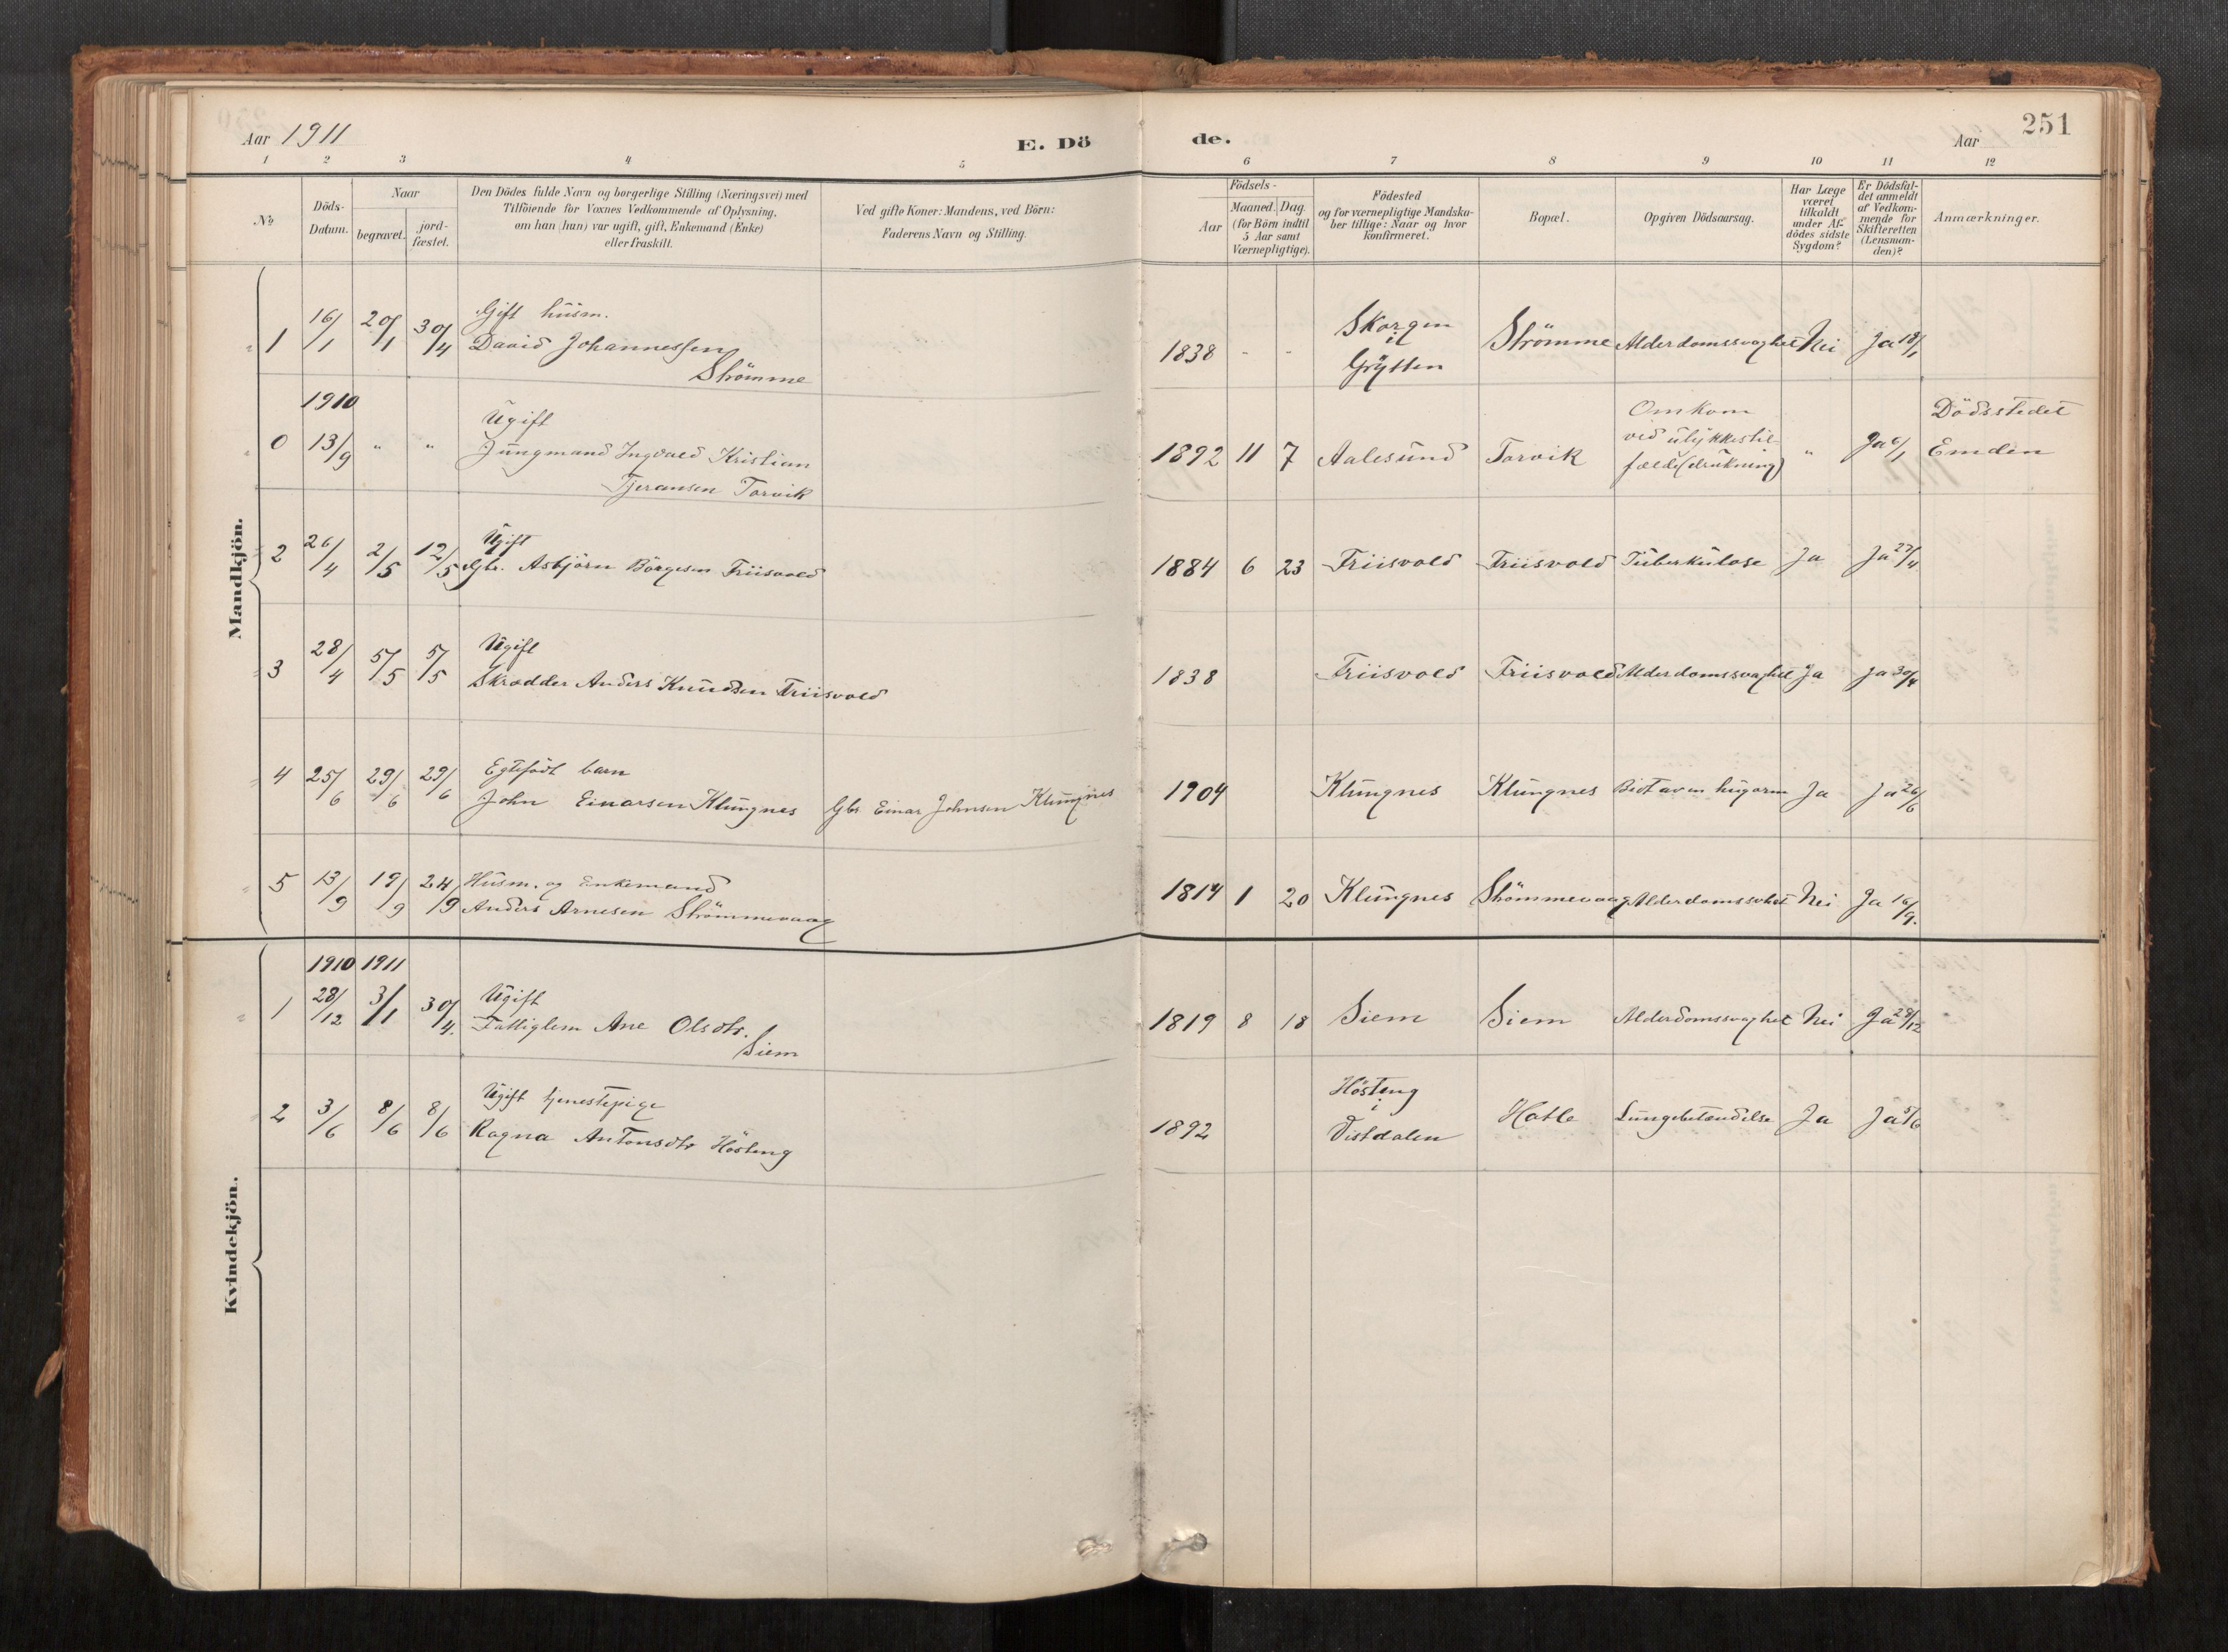 Aar 1911
E. Dö
de.
Aar
251
1 2 3 4 5 6 7 8 9 10 11 12
No
Döds-
Datum.
Naar
begravet.
jord-
fæstet.
Den Dödes fulde Navn og borgerlige Stilling (Næringsvei) med
Tilföiende for Voxnes Vedkommende af Oplysning,
om han (hun) var ugift, gift, Enkemand (Enke)
eller fraskilt.
Ved gifte Koner: Mandens, ved Börn:
Faderens Navn og Stilling.
Födsels-
Aar
Maaned. Dag.
(for Börn indtil
5 Aar samt
Værnepligtige).
Födested
og for værnepligtige Mandska-
ber tillige: Naar og hvor
konfirmeret.
Bopæl.
Opgiven Dödsaarsag.
Har Læge
været
tilkaldt
under Af-
dödes sidste
Sygdom?
Er Dödsfal-
det anmeldt
af Vedkom-
mende for
Skifteretten
(Lensman-
den)?
Anmærkninger.
Mandkjön.
1 16/1 20/1 30/4
Gift husm.
David Johannessen
Strömme
1838 - -
Skorgen
i
Grytten
Strömme Alderdomssvaghet Nei Ja 18/1
1910
0 13/9 " "
Ugift
Jungmand Ingvald Kristian
Tjeransen Torvik
1892 11 7 Aalesund Torvik
Omkom
ved ulykkestil-
fælde (drukning)
" Ja 6/1
Dödsstedet
Emden
2 26/4 2/5 12/5
Ugift
Gbr. Asbjörn Börgesen Friisvold
1884 6 23 Friisvold Friisvold Tuberkulose Ja Ja 27/4
3 28/4 5/5 5/5
Ugift
Skrædder Anders Knudsen Friisvold
1838 Friisvold Friisvold Alderdomssvaghet Ja Ja 30/4
4 25/6 29/6 29/6
Egtefödt barn
John Einarsen Klungnes Gbr. Einar Johnsen Klungnes
1904 Klungnes Klungnes Bidt av en hugorm Ja Ja 26/6
5 13/9 19/9 24/9
Husm. og Enkemand
Anders Arnesen Strömmevaag
1814 1 20 Klungnes Strömmevaag Alderdomssvhet Nei Ja 16/9.
Kvindekjön.
1910 1911
1 28/12 3/1 30/4.
Ugift
Fattiglem Ane Olsdtr.
Siem
1819 8 18 Siem Siem Alderdomssvaghet Nei Ja 28/12
2 3/6 8/6 8/6
Ugift tjenestepige
Ragna Antonsdtr Hösteng
1892
Hösteng
i
Vistdalen
Hatle Lungebetændelse Ja Ja 5/6